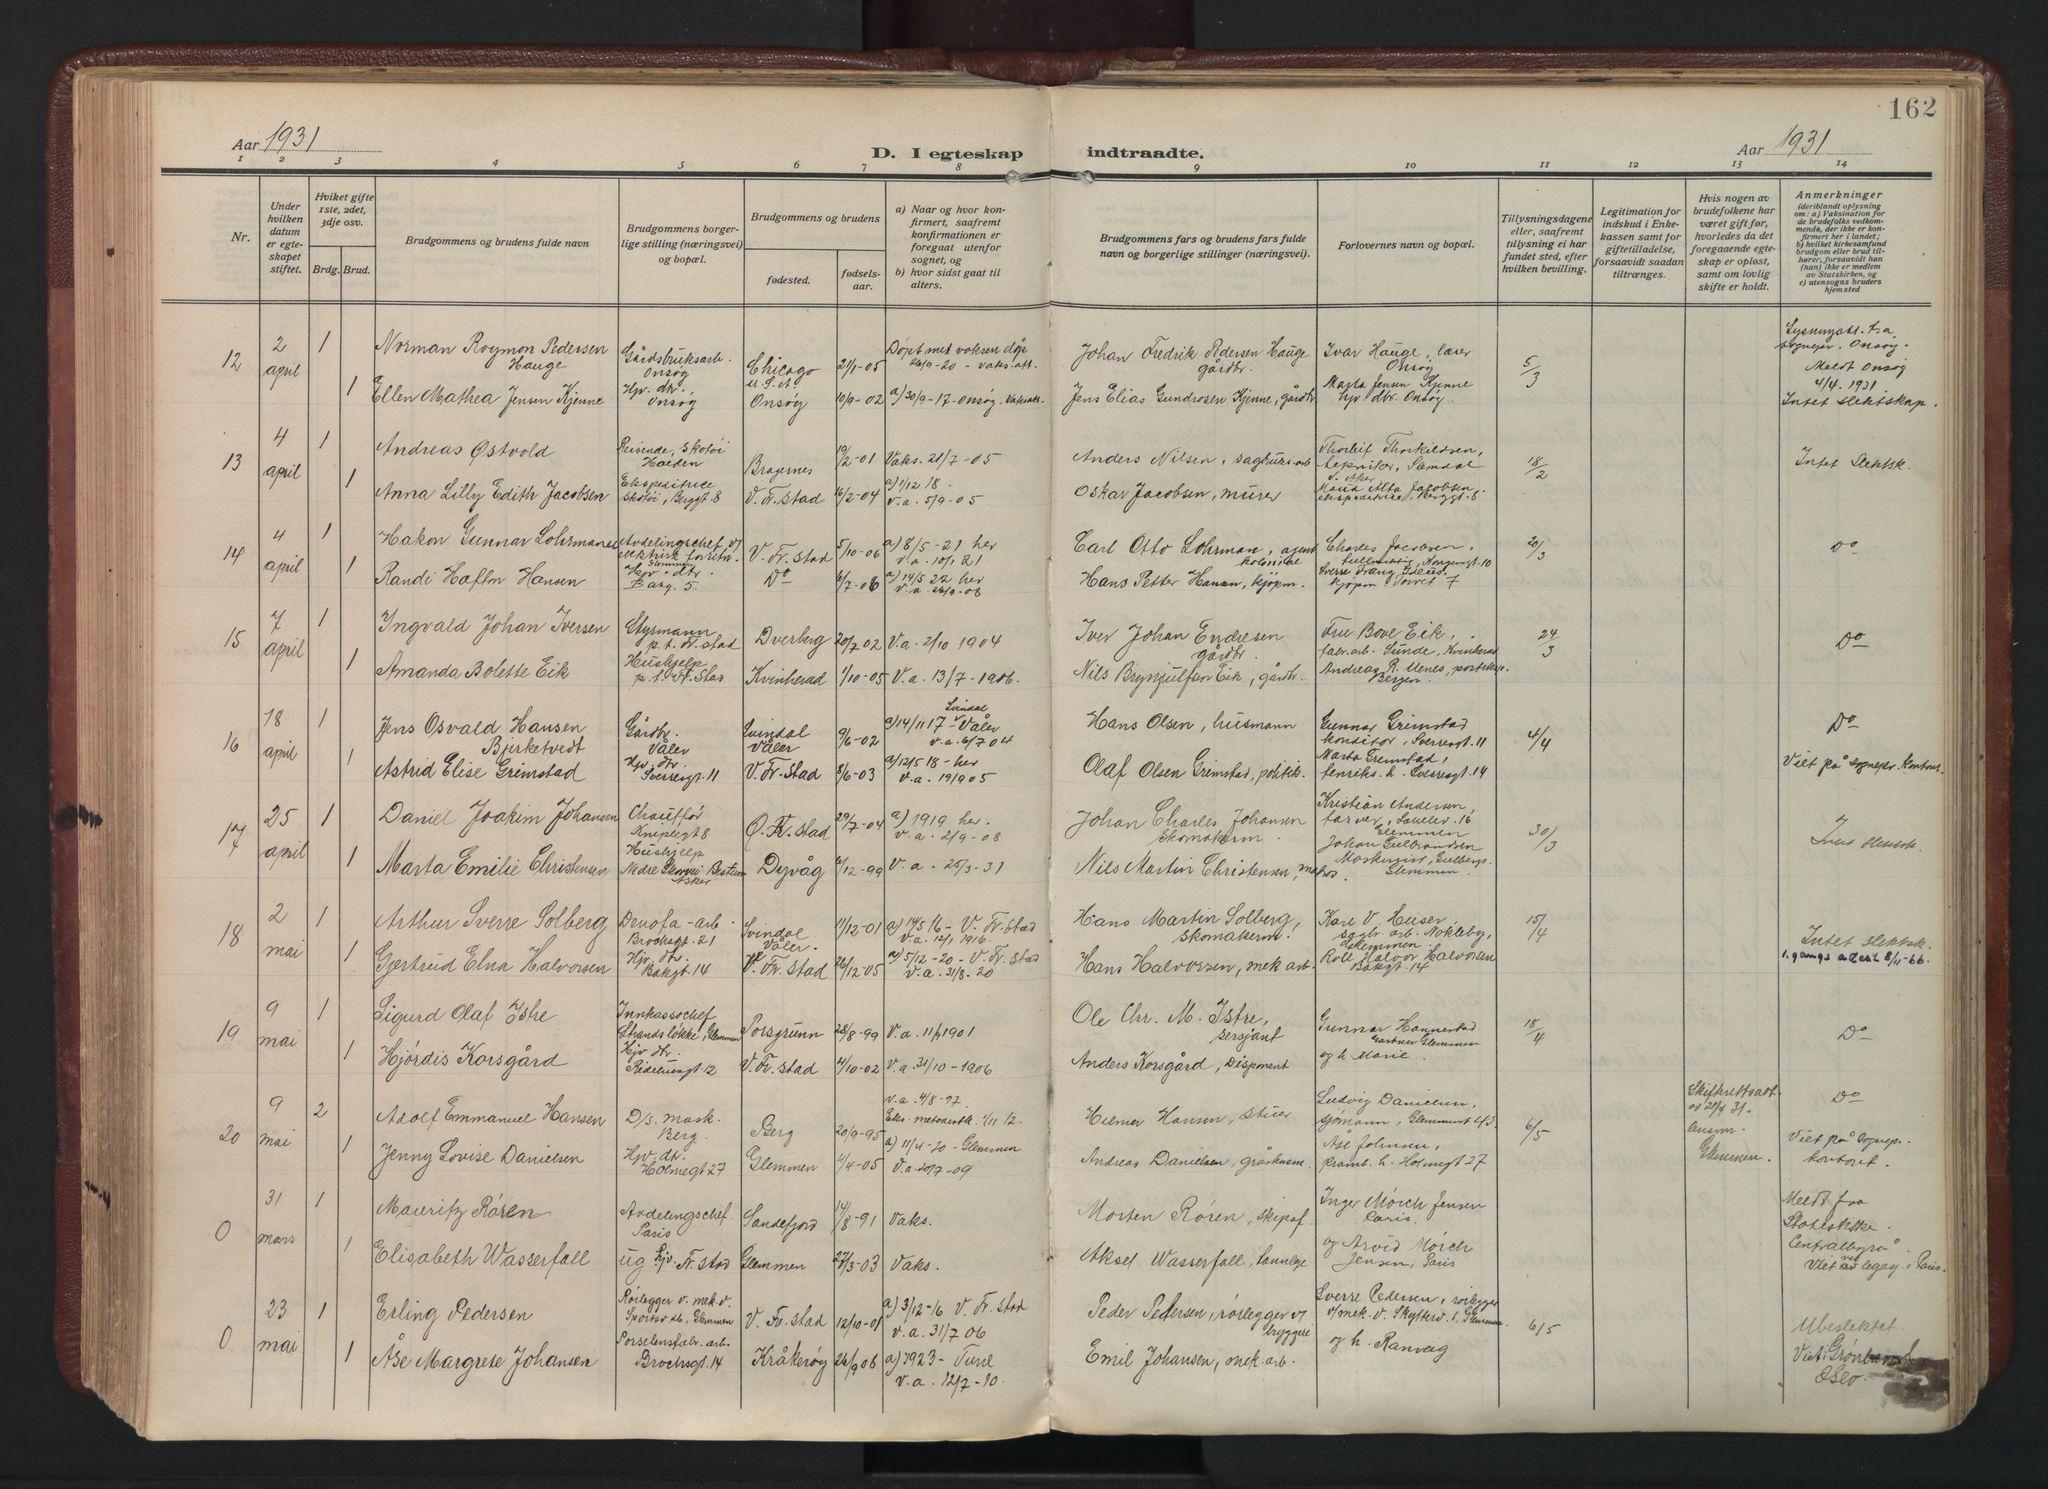 162
Aar 1931
D. I egteskap indtraadte.
Aar 1931
1 2 3 4 5 6 7 8 9 10 11 12 13 14
Nr.
Under hvilken datum er egteskapet stiftet.
Hviket gifte 1ste, 2det, 3dje osv.
Brdg. Brud.
Brudgommens og brudens fulde navn
Brudgommens borgerlige stilling (næringsvei) og bopæl.
Brudgommens og brudens
fødested.
fødselsaar.
a) Naar og hvor konfirmert, saafremt konfirmationen er foregaat utenfor sognet, og
b) hvor sidst gaat til alters.
Brudgommens fars og brudens fars fulde navn og borgerlige stillinger (næringsvei).
Forlovernes navn og bopæl.
Tillysningsdagene eller, saafremt tillysning ei har fundet sted, efter hvilken bevilling.
Legitimation for indskud i Enkekassen samt for giftetilladelse, forsaavidt saadan tiltrænges.
Hvis nogen av brudefolkene har været gift før, hvorledes da det foregaaende egteskap er opløst, samt om lovlig skifte er holdt.
Anmerkninger
(deriblandt oplysning om: a) Vaksination for de brudefolks vedkommende, der ikke er konfirmert her i landet;
b) hvilket kirkesamfund brudgom eller brud tilhører, forsaavidt han (hun) ikke er medlem av Statskirken, og
c) utensogns bruders hjemsted
12 2 april 1 Norman Roymon Pedersen Hauge Gårdsbruksarb. Onsøy Chicago U.S.A. 21/1-05 Døpt med voksen dåp 26/9-20 - vaks. att. Johan Fredrik Pedersen Hauge gårdbr. Ivar Hauge, lærer Onsøy 5/3 Lysningsatt. fra sognepr. Onsøy. Meldt Onsøy 4/4. 1931.
1 Ellen Mathea Jensen Kjenne Hjv. dtr. Onsøy Onsøy 10/9-02 a) 30/9-17-Onsøy. Vaksatt. Jens Elias Gundrosen Kjenne, gårdbr Marta Jensen Kjenne hjv dtr. Onsøy. Intet slektskap.
13 4 april 1 Andreas Østvold Reisende, Skotøi Halden Bragernes 19/2-01 Vaks. 21/7-05 Anders Nilsen, sagbruksarb Thorleif Thorkildsen, tekniker, V. Aker 18/2 Intet slektsk.
1 Anna Lilly Edith Jacobsen Ekspeditrice Skotøi, Bryggt 8 V. Fr.stad 16/2-04 a) 1/12 18. v.a. 5/9-05 Oskar Jacobsen, murer Maud Alta Jacobsen ekspeditrice, Bryggt. 8
14 4 april 1 Hakon Gunnar Lohrmann Avdelingschef v/ elektrisk forretn. Glemmen V. Fr.stad 5/10-06 a) 8/5-21 her v.a. 10/1 21 Carl Otto Lohrman, agent Charles Jacobsen, fullmektig, Kongensgt 10 20/3 Do
1 Randi Haftn Hansen Hjv. dtr. Bakg. 5 Do 6/7-06 a) 14/5 22 her v.a. 26/9-08 Hans Petter Hansen, kjøpm. kjøpm Torvet 7
15 7 april 1 Yngvald Johan Iversen Styrmann p.t. Fr.stad Dverberg 20/7 02 V.a. 2/10 1904 Iver Johan Endresen gårdbr. Fru Bove Eik, fabr.arb. Sunde, Kvinherad 24/3 Do
1 Amanda Bolette Eik Hushjelp p.t. Fr.stad Kvinherad 1/10-05 V.a. 13/7-1906. Nils Brynjulfsen Eik, gårdbr. Andreas R. Unes, Bergen.
16 18 april 1 Jens Osvald Hansen Bjerketvedt Gårdbr. Våler Svindal Våler 9/6-02 a) 14/11 17 Svindal - Våler v.a. 6/7 04 Hans Olsen, husmann Gunnar Grimstad konditor, Sverresgt. 11 4/4 Do
1 Astrid Elise Grimstad Hjv. dtr. Sverresgt. 11 V. Fr.stad 8/6-03 a) 12/5 18-her v.a. 19/9 05 Olaf Olsen Grimstad, politik. Marta Grimstad, Sverresgt. 14 Viet på sognepr. kontor.
17 25 april 1 Daniel Joakim Johansen Chauffør Kniplegt 8 Ø. Fr.stad 29/7-04 a) 1919 her. v.a. 2/9-08 Johan Charles Johansen skomakerm. Kristian Andersen, farver, Glemmen 30/3 Intet slektsk.
1 Marta Emilie Christensen Hushjelp Nedre Bestum Asker Dyvåg 6/12-99 V.a-25/3-31 Nils Martin Christensen, matros. Johan Gulbrandsen Maskinist, Gulbergs. Glemmen.
18 2 mai 1 Arthur Sverre Solberg Denofa-arb. Brochsgt. 21 Svindal Våler. 11/12-01 a) 14/5 16-V. Fr.stad v.a. 12/1 1916. Hans Martin Solberg, skomakerm. Karl V. Huser, sagbr. arb. Nokleby, Glemmen 15/4 Intet slektsk.
1 Gjertrud Elna Halvorsen Hjv. dtr. Bakgt. 14 V. Fr.stad 26/12-05 a) 5/12-20-V. Fr.stad v.a. 31/8-20 Hans Halvorsen, mek arb. Rolf Halvor Halvorsen Bakgt. 14 1. gangs attest 8/11-66.
19 9 mai 1 Sigurd Olaf Istre Innkassochef Strandsløkke, Glemmen Porsgrunn 28/8-99 V.a. 11/9 1901 Ole Chr. M. Istre, sersjant Gunnar Hannestad Gartner Glemmen og h. Marie 18/4 Do
1 Hjørdis Korsgård Hjv dtr. Ridehusgt. 12 V. Fr.stad 4/10-02 v.a. 31/10-1906 Anders Korsgård, Disponent
20 9 mai 2 Adolf Emmanuel Hansen D/s. mask. Berg. Berg 20/9-95 v.a. 4/8-97 Eks. metodistk. 1/11 12. Hilmer Hansen, stuer Ludvig Danielsen, sjømann, Glemmen 6/5 Skifterettsatt. Glemmen. Do
1 Jenny Lovise Danielsen Hjv. dtr. Holmegt 27 Glemmen 4/4-05 a) 11/4-20-Glemmen v.a. 20/7-09 Andreas Danielsen, Åse Johnsen, Holmegt 27 Viet på sognepr. kontoret.
0 31 mars 1 Mauritz Røren Avdelingschef. Paris Sandefjord 14/8-91 Vaks. Morten Røren, skipsf. Inger Mörch Jensen Paris. Meldt fra Statistiske Centralbyrå.
1 Elisabeth Wasserfall ug hjv. Fr.stad Glemmen 27/3-03 Vaks. Aksel Wasserfall, tannlege og Arvid Mörch Jensen, Paris Viet ved legasj. i Paris.
0 23 mai 1 Erling Pedersen Rørlegger v. mek.v. Glemmen V. Fr.stad 12/10-01 a) 3/12-16 V. Fr.stad v.a. 31/7 06 Peder Pedersen, rørlegger v/ bryggeri Sverre Pedersen, rørlegger v/mek. v. Glemmen 6/5 Ubeslektet.
1 Åse Margrete Johansen Porselensfabr. arb. Brochsgt. 14 Kråkerøy 26/9 06 a) 1923-Tune v.a. 12/7-10. Emil Johansen, mek. arb. og h. Ranveig Viet i Grønland, Oslo.